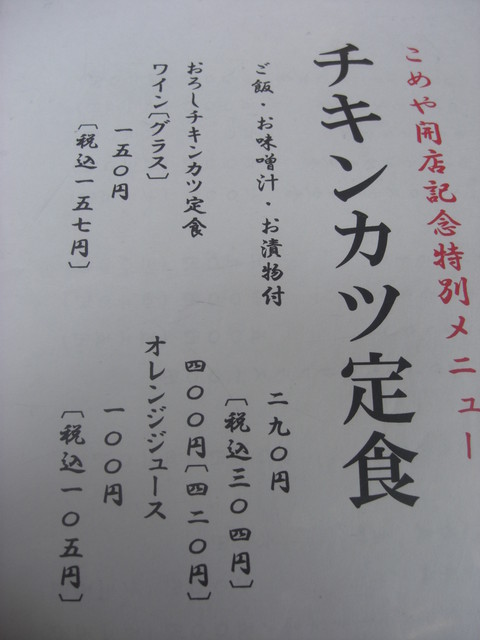 こめや開店記念特別メニュー
チキンカツ定食
ご飯・お味噌汁・お漬物付
二九〇円
〔税込三〇四円〕
おろしチキンカツ定食
四〇〇円〔四二〇円〕
ワイン〔グラス〕
一五〇円
〔税込一五七円〕
オレンジジュース
一〇〇円
〔税込一〇五円〕